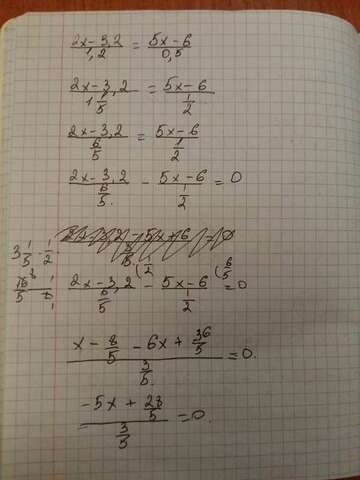 2x-3,2/1,2 = 5x-6/0,5
2x-3,2/1 1/5 = 5x-6/1/2
2x-3,2/6/5 = 5x-6/1/2
2x-3,2/6/5. - 5x-6/1/2 = 0
3 1/5 · 1/2
2x-3,2/6/5 (1/2 - 5x-6/1/2 (6/5 = 0
x - 8/5 - 6x + 36/5 / 3/5. = 0.
-5x + 28/5 / 3/5 = 0.